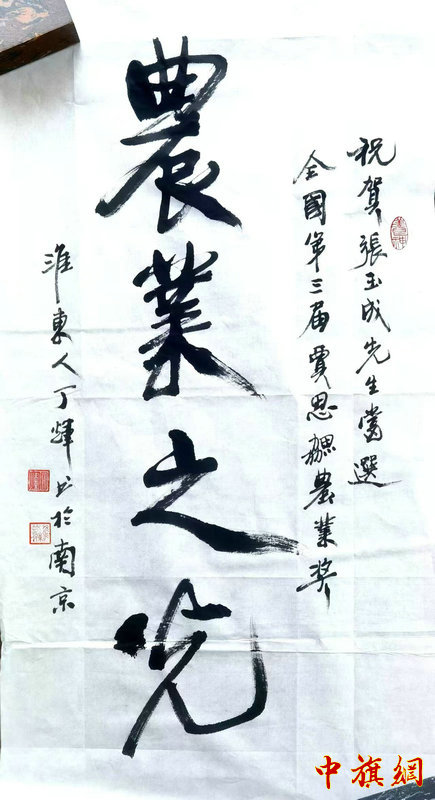 祝賀張玉成先生當選
全國第三届賈思勰農業奖
農業之光
淮東人丁輝书於南京
中旗網